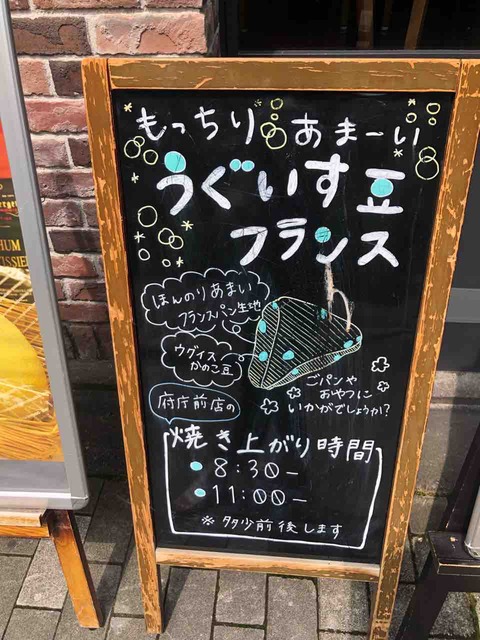 もっちり あまーい
うぐいす豆
フランス
ほんのりあまい
フランスパン生地
ウグイス
かのこ豆
ごパンや
おやつに
いかがでしょうか?
府庁前店の
焼き上がり時間
8:30―
11:00―
※多少前後します
HUM
TISSIER